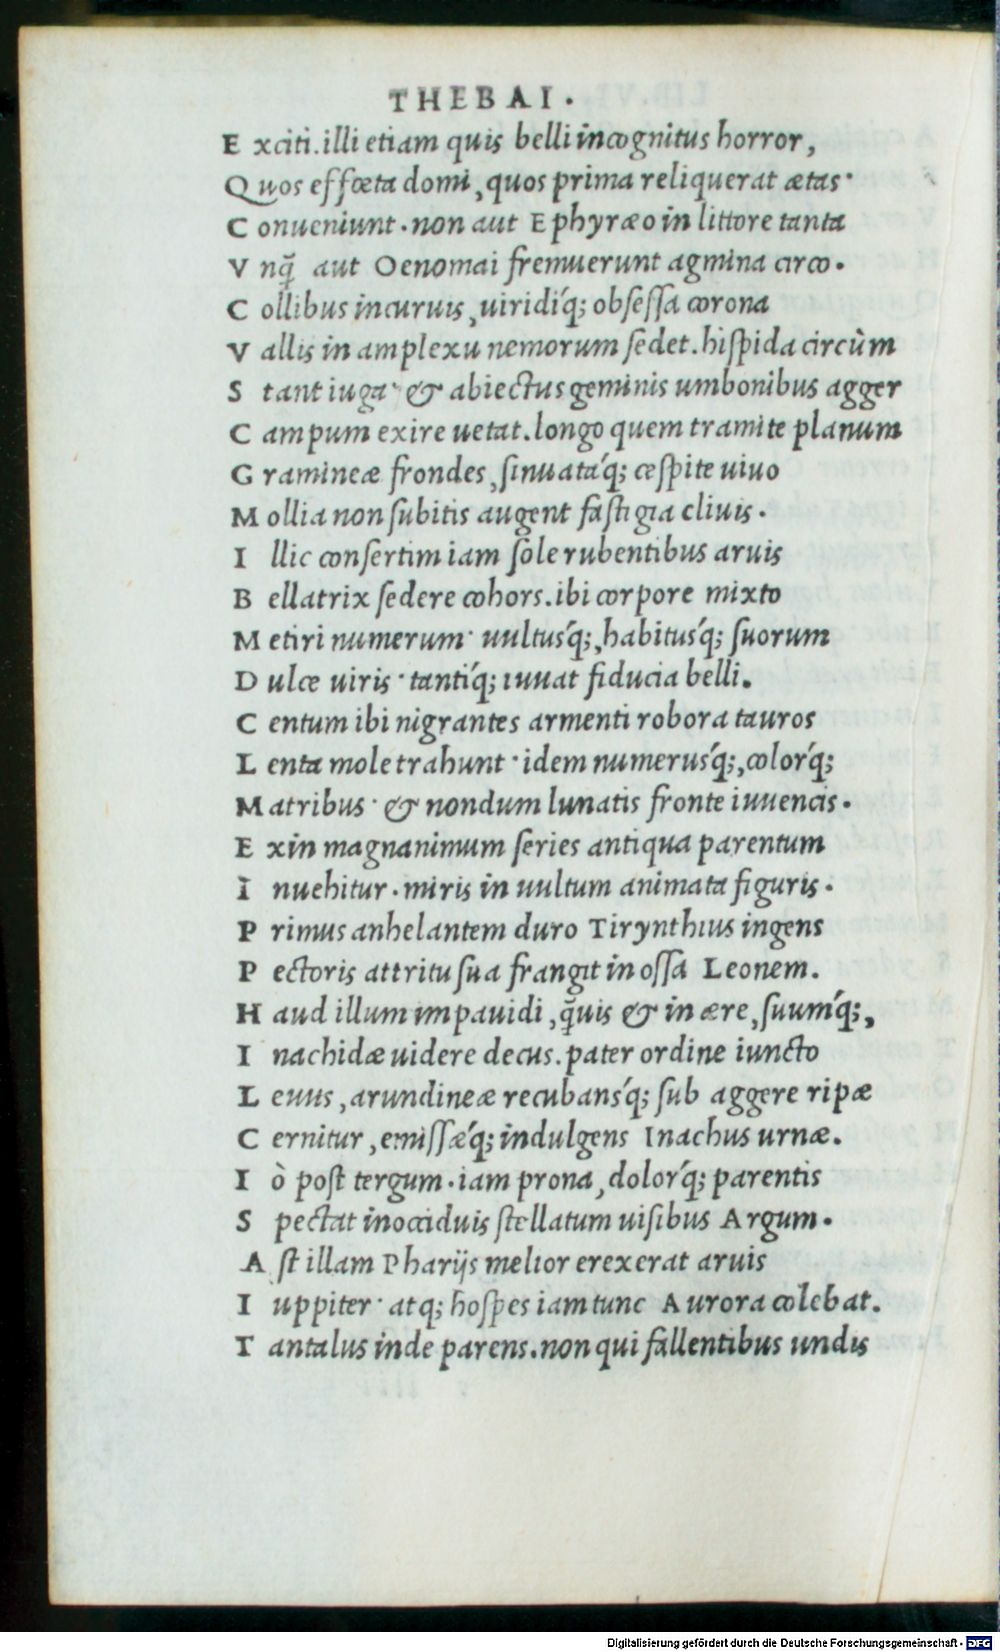 THEBAI.
E xciti. illi etiam quis belli incognitus horror,
Q uos effœta domi, quos prima reliquerat ætas·
C onueniunt. non aut Ephyræo in littore tanta
V nq̃ aut Oenomai fremuerunt agmina circo.
C ollibus incuruis, uiridiq́; obſeſſa corona
V allis in amplexu nemorum ſedet. hiſpida circùm
S tant iuga· & abiectus geminis umbonibus agger
C ampum exire uetat. longo quem tramite planum
G ramineæ frondes, ſinuatáq; ceſpite uiuo
M ollia non ſubitis augent faſtigia cliuis.
I llic conſertim iam ſole rubentibus aruis
B ellatrix ſedere cohors. ibi corpore mixto
M etiri numerum· uultusq́;, habitusq́; ſuorum
D ulce uiris· tantiq́; iuuat fiducia belli.
C entum ibi nigrantes armenti robora tauros
L enta mole trahunt· idem numerusq́;, colorq́;
M atribus· & nondum lunatis fronte iuuencis.
E xin magnanimum ſeries antiqua parentum
I nuehitur. miris in uultum animata figuris.
P rimus anhelantem duro Tirynthius ingens
P ectoris attritu ſua frangit in oſſa Leonem.
H aud illum impauidi, q̃uis & in ære, ſuumq́;,
I nachidæ uidere decus. pater ordine iuncto
L euus, arundineæ recubansq́; ſub aggere ripæ
C ernitur, emiſſæq́; indulgens Inachus urnæ.
I ò poſt tergum. iam prona, dolorq́; parentis
S pectat inocciduis ſtellatum uiſibus Argum.
A ſt illam Pharijs melior erexerat aruis
I uppiter· atq; hoſpes iam tunc Aurora colebat.
T antalus inde parens. non qui fallentibus undis
Digitalisierung gefördert durch die Deutsche Forschungsgemeinschaft - DFG